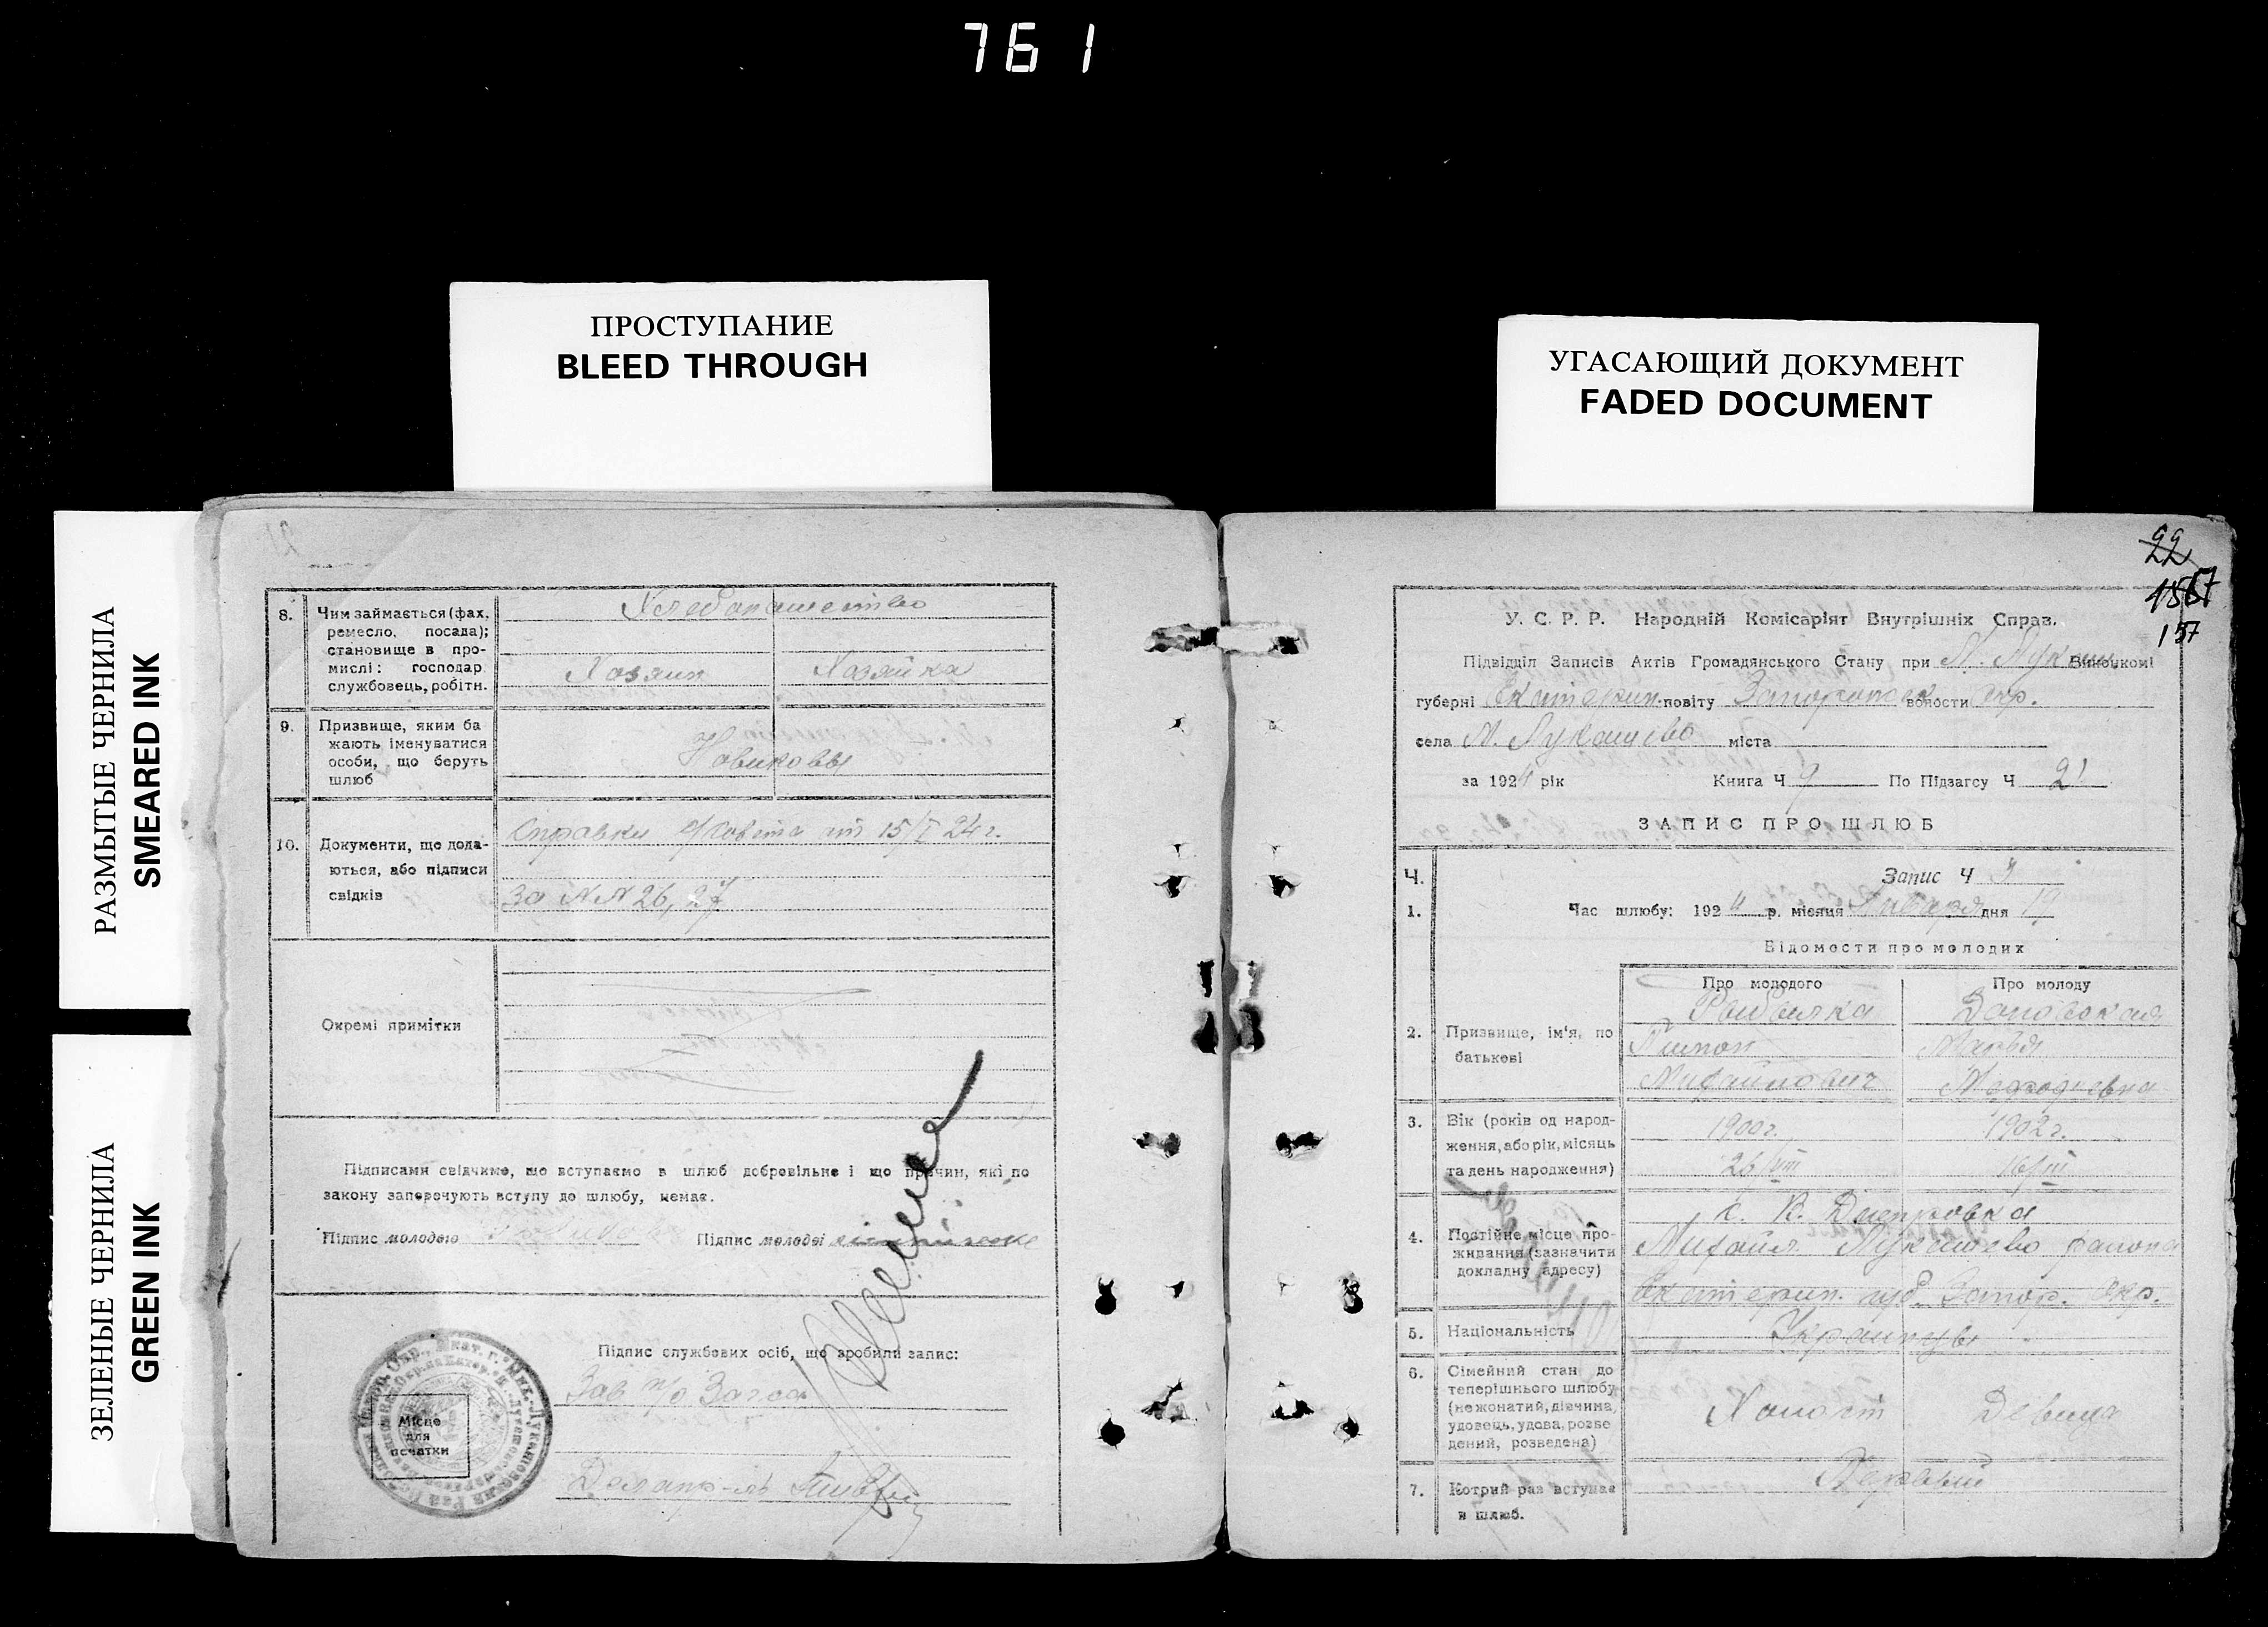 761
ПРОСТУПАНИЕ
BLEED THROUGH
УГАСАЮЩИЙ ДОКУМЕНТ
FADED DOCUMENT
РАЗМЫТЫЕ ЧЕРНИЛА
SMEARED INK
ЗЕЛЕНЫЕ ЧЕРНИЛА
GREEN INK
8. Чим займається (фах, ремесло, посада);
становище в про-
мислі: господар.
службовець, робітн.
Хлебопашество
Хозяин Хозяйка
9. Призвище, яким ба
жають іменуватися
особи, що беруть
шлюб
Новиковы
10. Документи, що дода-
ються, або підписи
свідків
Справки с/совета от 15/I 24 г.
За NN 26, 27
Окремі примітки
Підписами свідчимо, що вступаємо в шлюб добровільне і що причин, які по
закону заперечують вступу до шлюбу, немає.
Підпис молодого Підпис молодої
Підпис службових осіб, що зробили запис:
Зав п/о Загса
Делопр-ль
Місце
для
печатки
22
157
У. С. Р. Р. Народній Комісаріят Внутрішніх Справ.
Підвідділ Записів Актів Громадянського Стану при М. Лукаш Виконкомі
губерні Екатерин. повіту Запорожск волости окр.
села М. Лукашево міста
за 1924 рік Книга Ч 9 По Підзагсу Ч 21
ЗАПИС ПРО ШЛЮБ
Ч. Запис Ч
1. Час шлюбу: 1924 р. місяця Января дня 19
Відомости про молодих
Про молодого Про молоду
2. Призвище, ім'я, по
батькові
Михайлович
Марья
3. Вік (років од народ-
ження, або рік, місяць
та день народження)
1900 г. 1902 г.
26/VIII 16/III
4. Постійне місце про-
живання (зазначити
докладну адресу)
с. К. Днепровка
Михайл. Лукашево района
Екатерин. губ. Запор. Окр.
5. Національність
Украинцы
6. Сімейний стан до
теперішнього шлюбу
(нежонатий, дівчина,
удовець, удова, розве
дений, розведена)
Холост Девица
7. Котрий раз вступає
в шлюб.
Первый